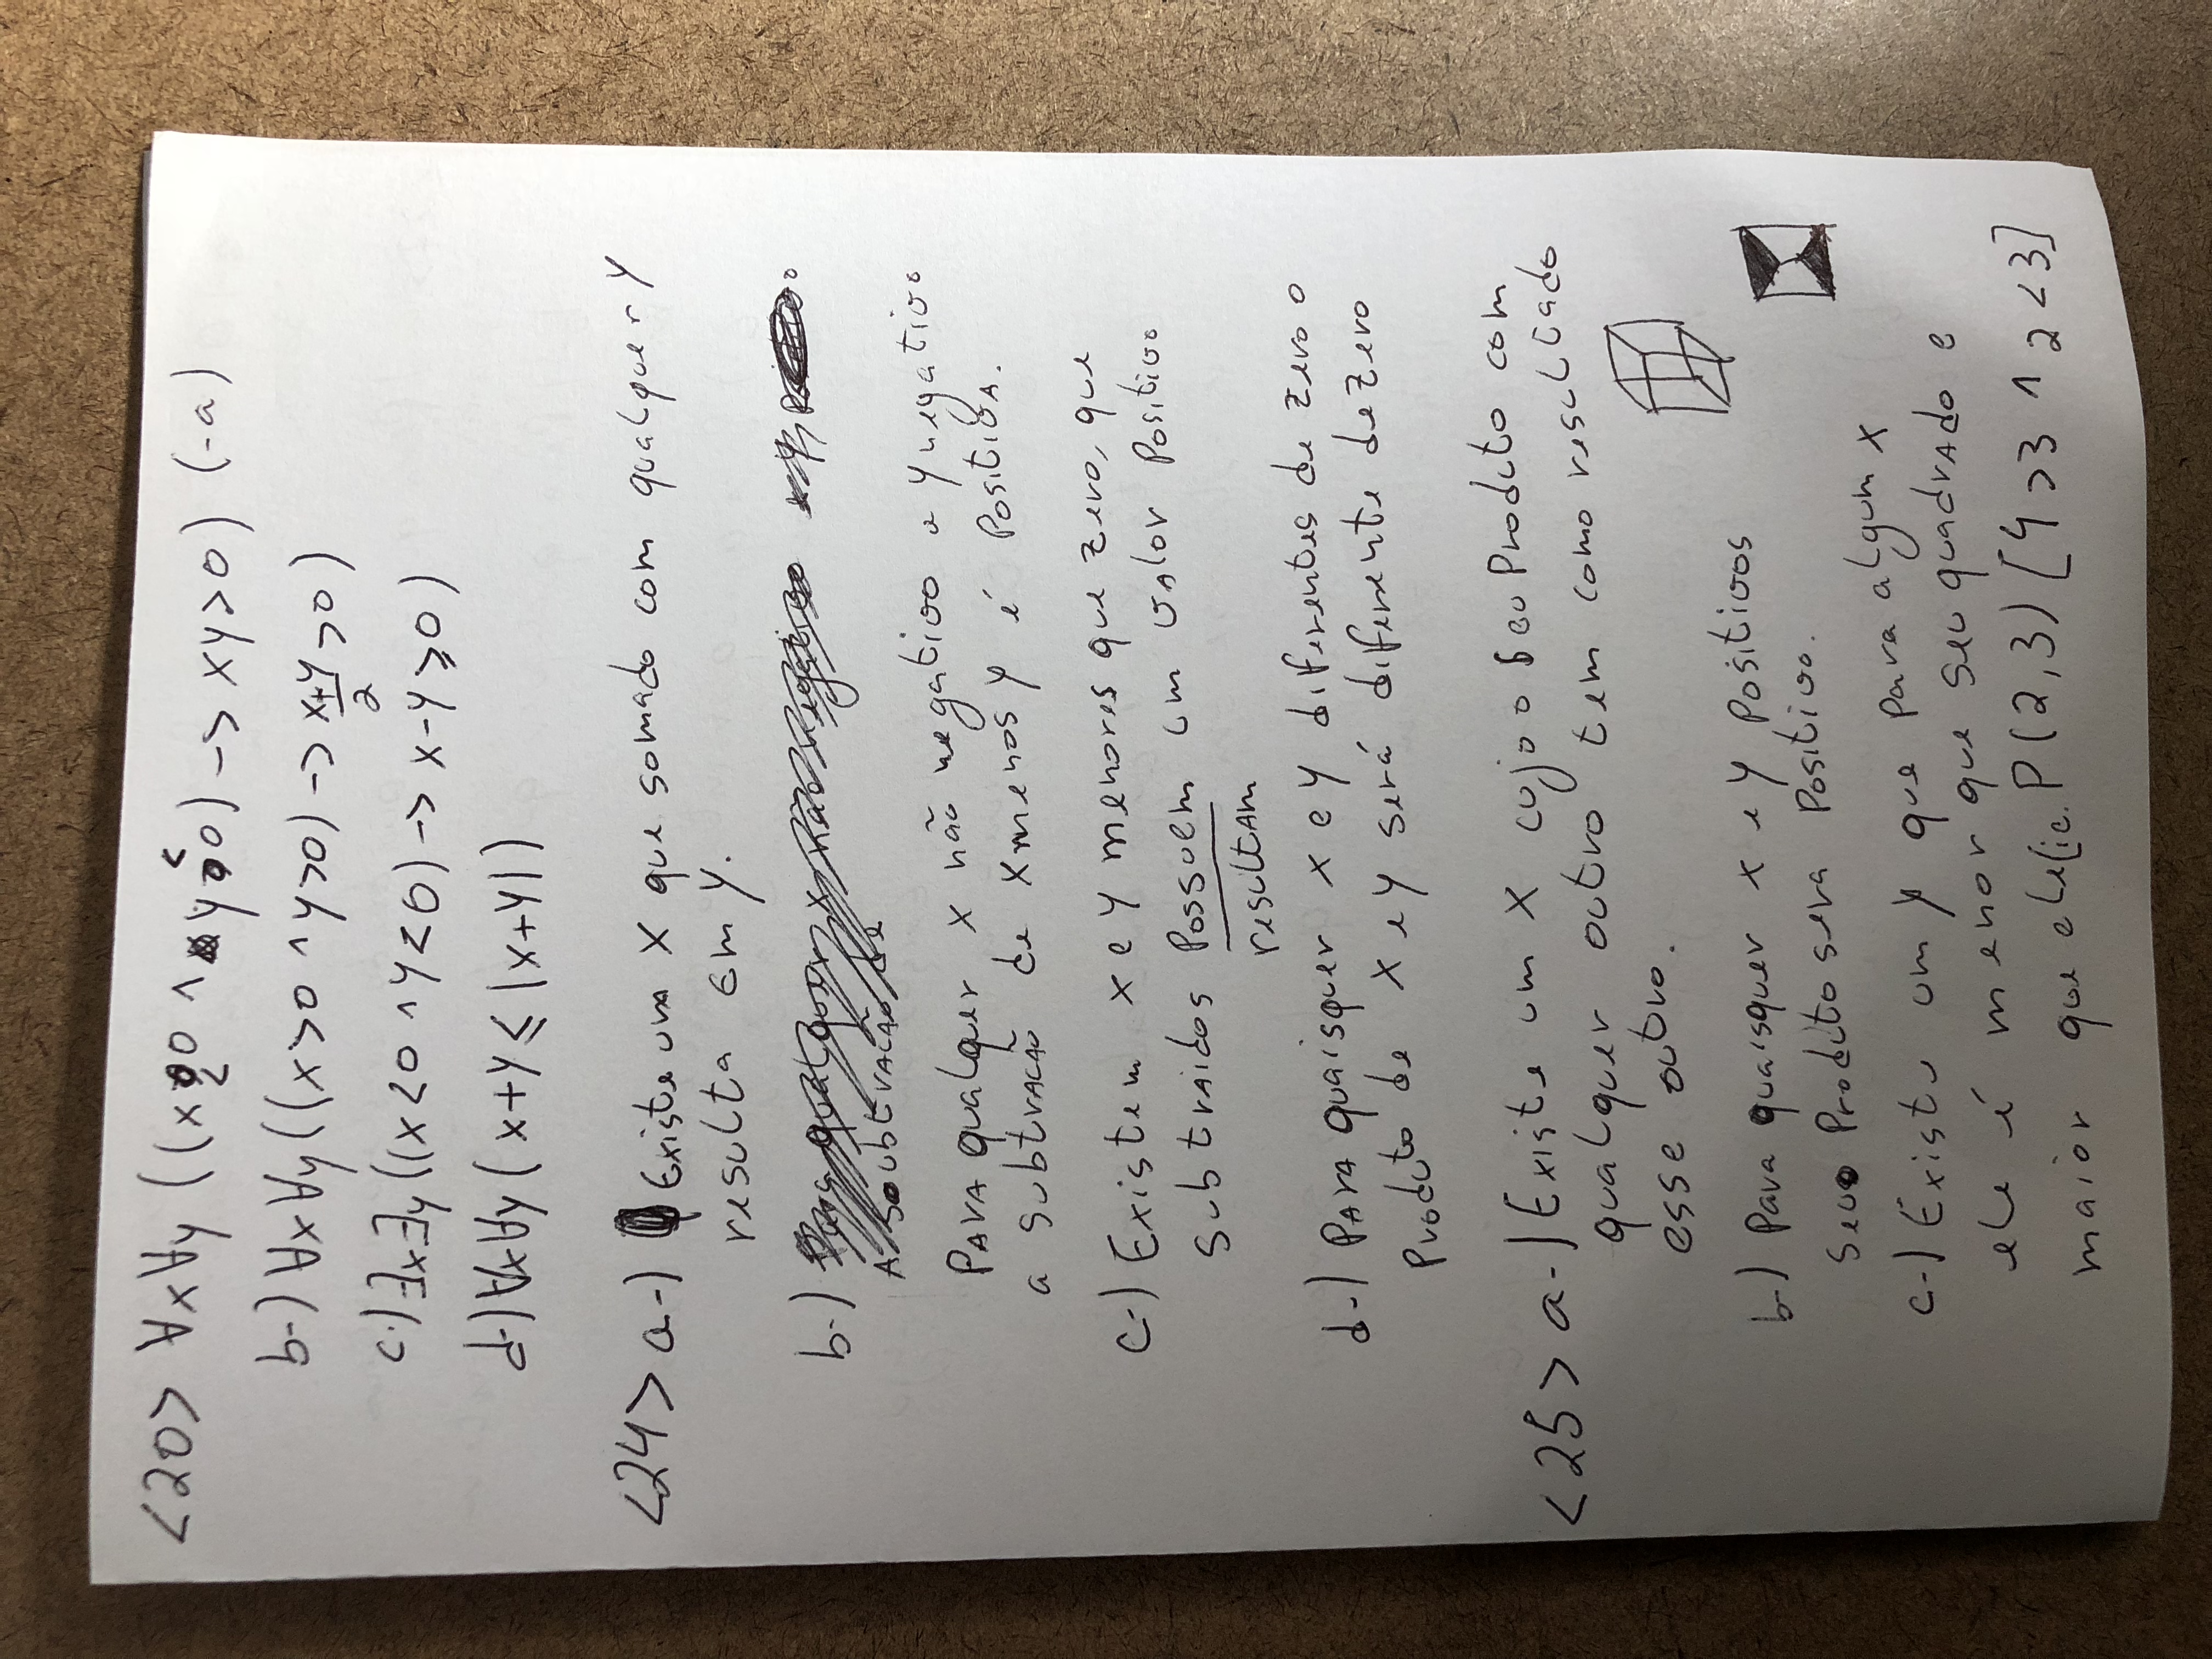 <20> ∀x∀y ((x<0 ^ y<0) -> xy>0) (-a)
b-) ∀x∀y ((x>0 ^ y>0) -> x+y/2 >0)
c-) ∃x∃y ((x<0 ^ y<0) -> x-y≥0)
d-) ∀x∀y ( x+y ≤ |x+y|)
<24> a-) Existe um x que somado com qualquer y
resulta em y.
b-) Para qualquer x não negativo
A soubtração de
Para qualqer x não negativo e y negativo
a subtração de x menos y é positiva.
c-) Existem x e y menores que zero, que
subtraidos possuem um valor positivo
resultam
d-) Para quaisquer x e y diferentes de zero o
produto de x e y será diferente de zero
<25> a-) Existe um x cujo o seu produto com
qualquer outro tem como resultado
esse outro.
b-) Para quaisquer x e y positivos
seu produto sera positivo.
c-) Existe um y que para algum x
ele é menor que seu quadrado e
maior que ele(ie. P(2,3) [4>3 ^ 2<3]